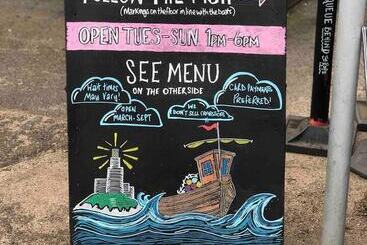 FOLLOW THE FISH
(Markings on the floor in line with the boats)
OPEN TUES-SUN. 1PM-6PM
SEE MENU
ON THE OTHERSIDE
Wait times
May Vary!
OPEN
MARCH-SEPT
WE
DON'T SELL
CARD PAYMENTS
Preferred!
QUEUE BEHIND